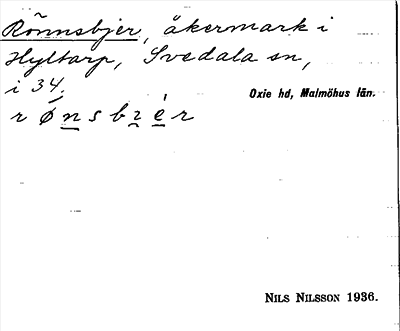 Rönnsbjer, åkermark i
Hyltarp, Svedala sn,
i 34.
Oxie hd, Malmöhus län.
r ǿ n s b r é r
NILS NILSSON 1936.